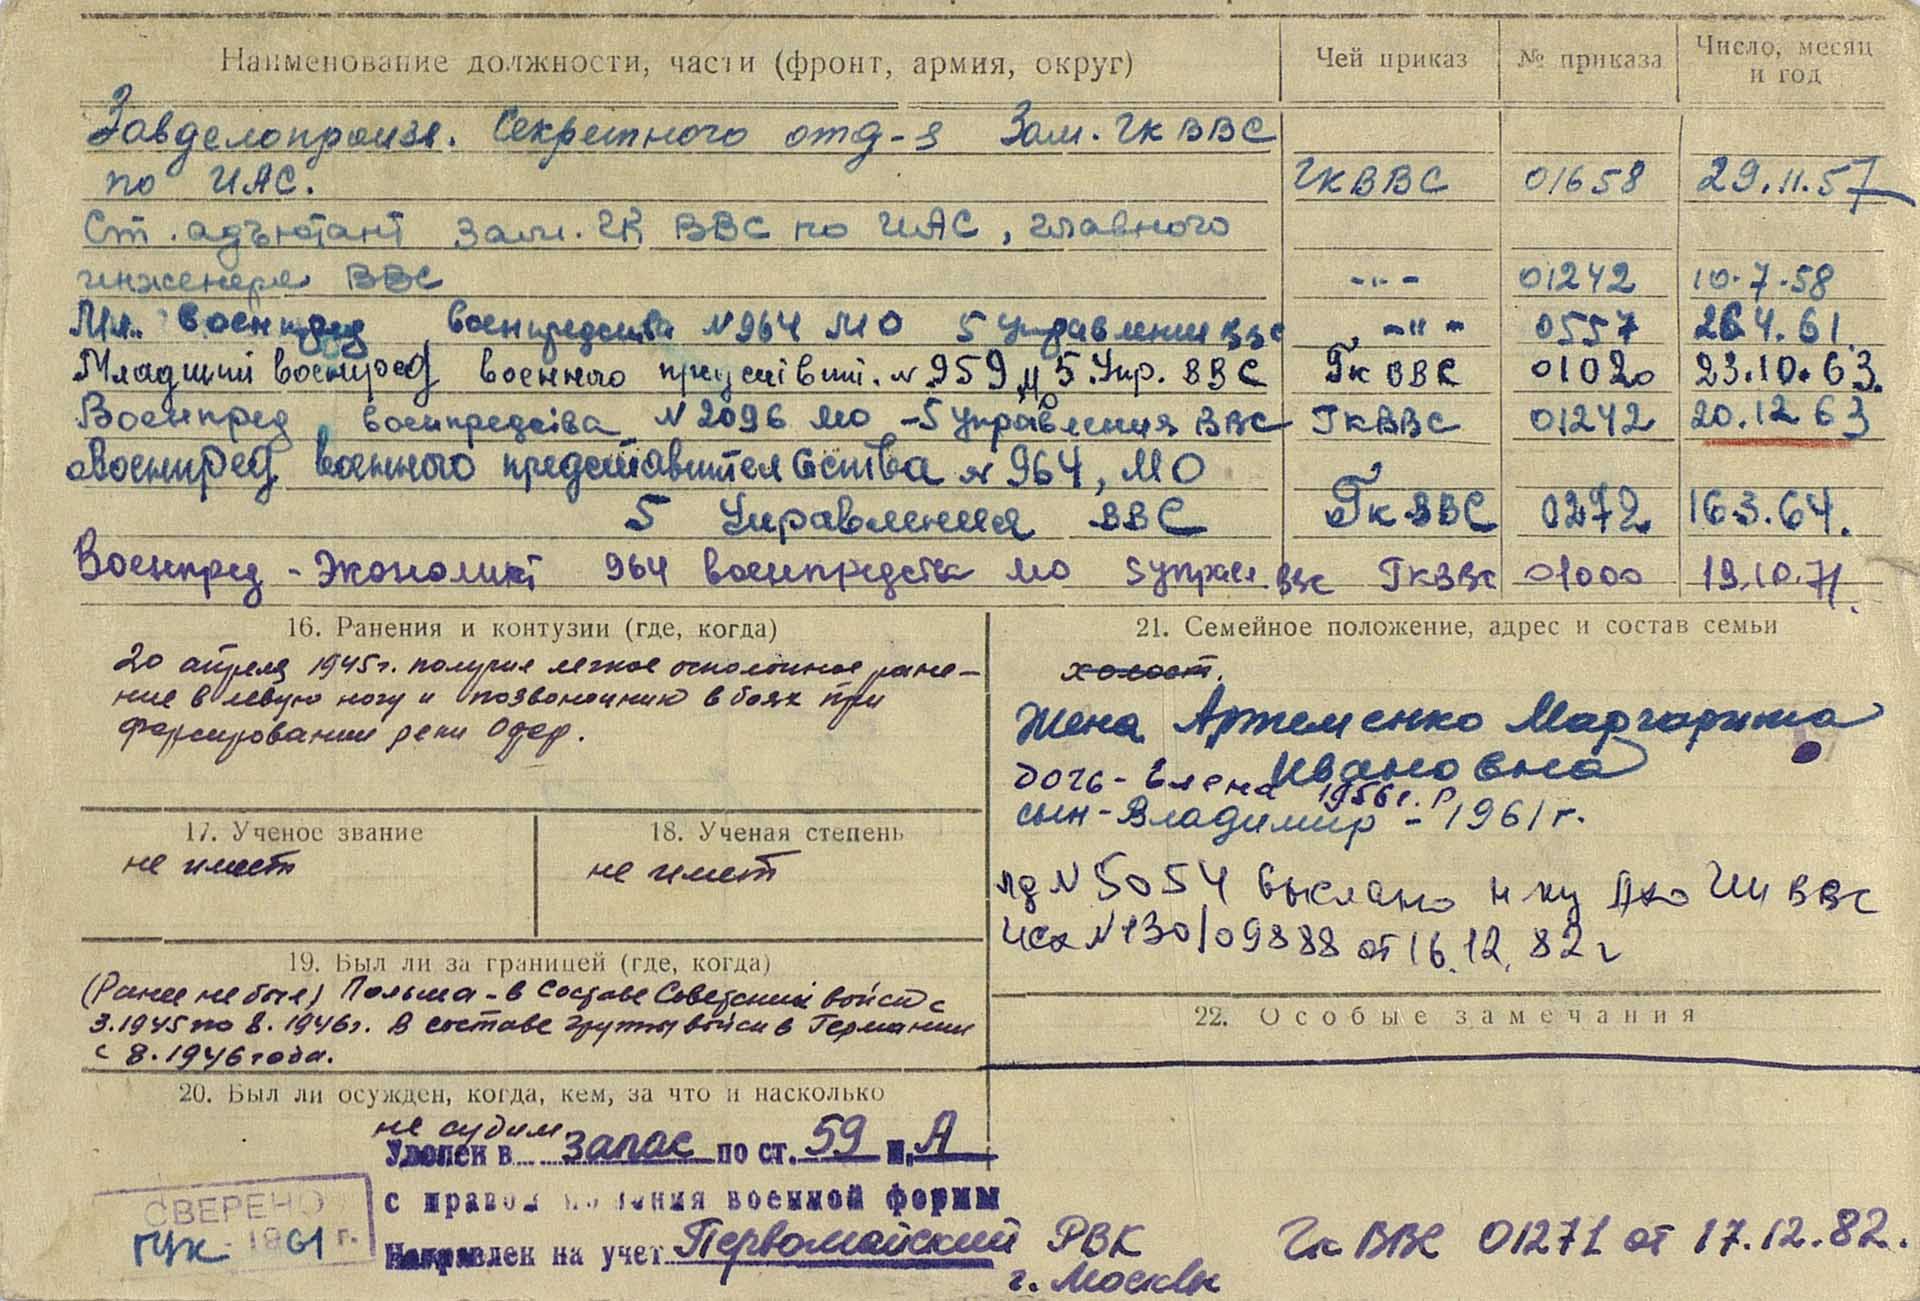 Наименование должности, части (фронт, армия, округ) Чей приказ № приказа Число, месяц и год
Завделопроизв. Секретного отд-я Зам. ГК ВВС
по ИАС. ГКВВС 01658 29.11.57
Ст. адъютант зам. ГК ВВС по ИАС, главного
инженера ВВС -"- 01242 10.7.58
Мл. военпред военпредства N964 МО 5 Управления ВВС -"- 0557 26.4.61
Младший военпред военного N959 5 Упр. ВВС ГкВВС 01020 23.10.63.
Военпред военпредства N2096 МО -5 управления ВВС ГкВВС 01242 20.12 63
Военпред военного представительства N964, МО
5 Управления ВВС ГкВВС 0272 16.3.64.
Военпред - Экономист 964 военпредства МО 5 управл ВВС ГкВВс 01000 19.10.71.
16. Ранения и контузии (где, когда)
20 апреля 1945г. получил легкое осколочное ране-
ние в левую ногу и позвоночник в боях при
форсировании реки Одер.
17. Ученое звание
не имеет
18. Ученая степень
не имеет
19. Был ли за границей (где, когда)
(Ранее не был) Польша - в составе Советский войск с
3.1945 по 8.1946г. В составе группы войск в Германии
с 8.1946 года.
20. Был ли осужден, когда, кем, за что и насколько
не судим
Уволен в запас по ст. 59 п. А
с правом ношения военной формы
Направлен на учет Первомайский РВК
г. Москвы
СВЕРЕНО
ГУК - 1961 г.
21. Семейное положение, адрес и состав семьи
холост.
Жена Артеменко Маргарита
Ивановна
дочь - Елена 1956г. р
сын - Владимир - 1961г.
лд N 5054 выслано ВВС
Исх N130/09888 от 16.12.82г
22. Особые замечания
Гк ВВС 01271 от 17.12.82.